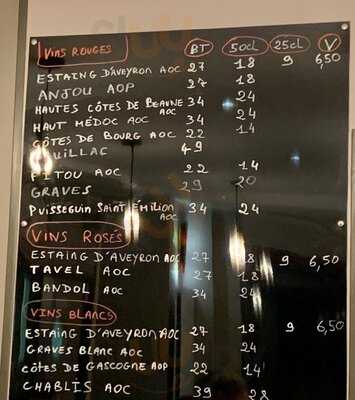 VINS ROUGES BT 50cl 25cl V
ESTAING D'AVEYRON AOC 27 18 9 6,50
ANJOU AOP 27 18
HAUTES CÔTES DE BEAUNE AOC 34 24
HAUT MÉDOC AOC 34 24
CÔTES DE BOURG AOC 22 14
49
FITOU AOC 22 14
GRAVES 29 20
PUISSEGUIN SAINT ÉMILION AOC 34 24
VINS ROSÉS
ESTAING D'AVEYRON AOC 27 18 9 6,50
TAVEL AOC 27 18
BANDOL AOC 34 24
VINS BLANCS
ESTAING D'AVEYRON AOC 27 18 9 6,50
GRAVES BLANC AOC 34 24
CÔTES DE GASCOGNE AOP 22 14
CHABLIS AOC 39 28